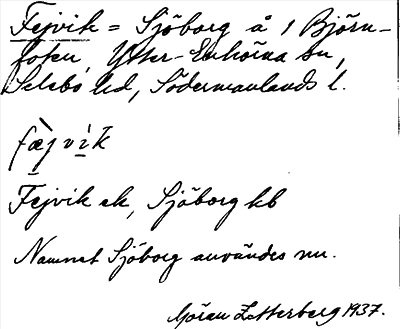 Fejvik = Sjöborg å 1 Björn-
foten, Ytter-Enhörna sn,
Selebo hd, Södermanlands l.
fæ̀j vìk
Fejvik ek, Sjöborg kb
Namnet Sjöborg användes nu.
Göran Zetterberg 1937.